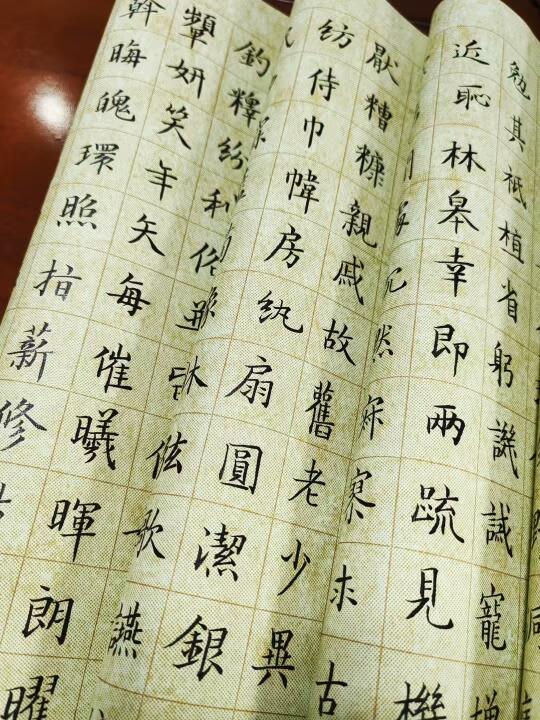 勉其祗植省躬譏誡寵增
近恥林皋幸即兩疏見機
寥求古
厭糟糠親戚故舊老少異
紡侍巾幃房紈扇圓潔銀
歌讌
釣釋紛利俗並皆
顰妍笑年矢每催曦暉朗曜
幹晦魄環照指薪修